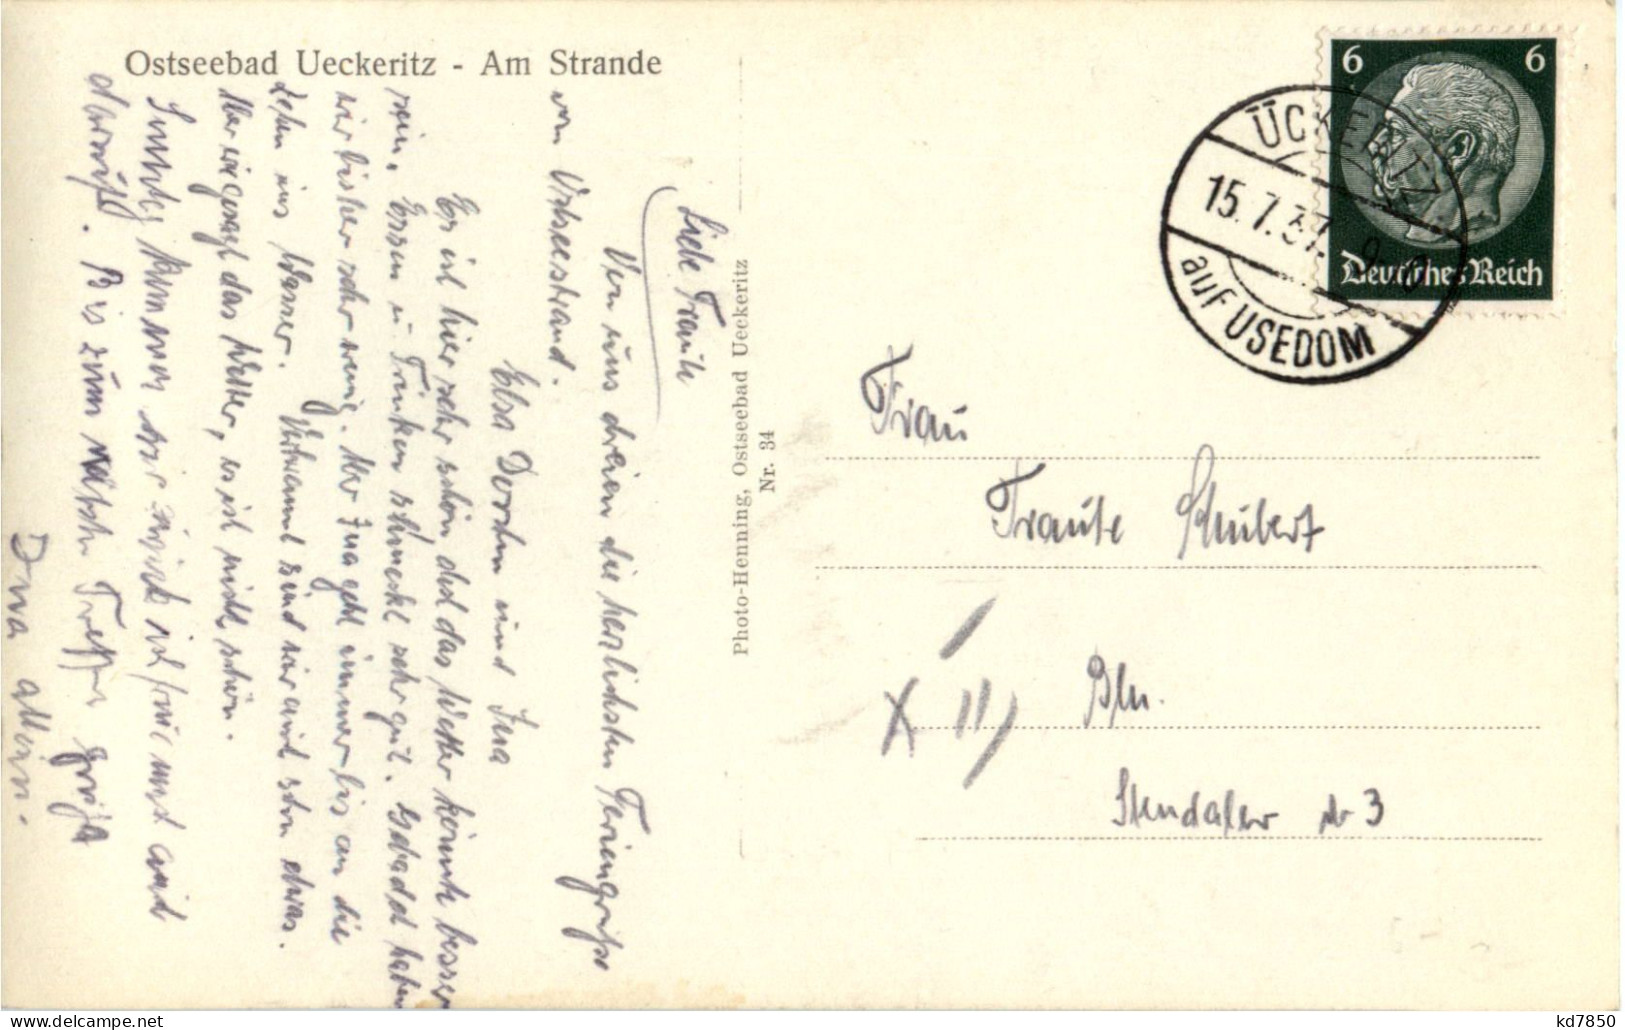 Ostseebad Ueckeritz - Am Strande
Liebe Traute
Von uns dreien die herzlichsten Feriengrüße
vom Ostseestrand.
Elsa Dorchen und Inga
Es ist hier sehr schön und das Wetter könnte besser
sein. Essen u. Trinken schmeckt sehr gut. Gebadet haben
wir bisher sehr wenig. Aber Inga geht immer bis an die
Zehen ins Wasser. Verbrannt sind wir auch schon etwas.
Aber wie gesagt das Wetter, es ist nicht schön.
kommen wir zurück ich freu mich auch
darauf. Bis zum nächsten Treffen grüßt
Photo-Henning, Ostseebad Ueckeritz
Nr. 34
6 6
Deutsches Reich
ÜCKERITZ
15.7.37
auf USEDOM
Frau
Traute Schubert
Bln.
Stendaler str 3
kd7850